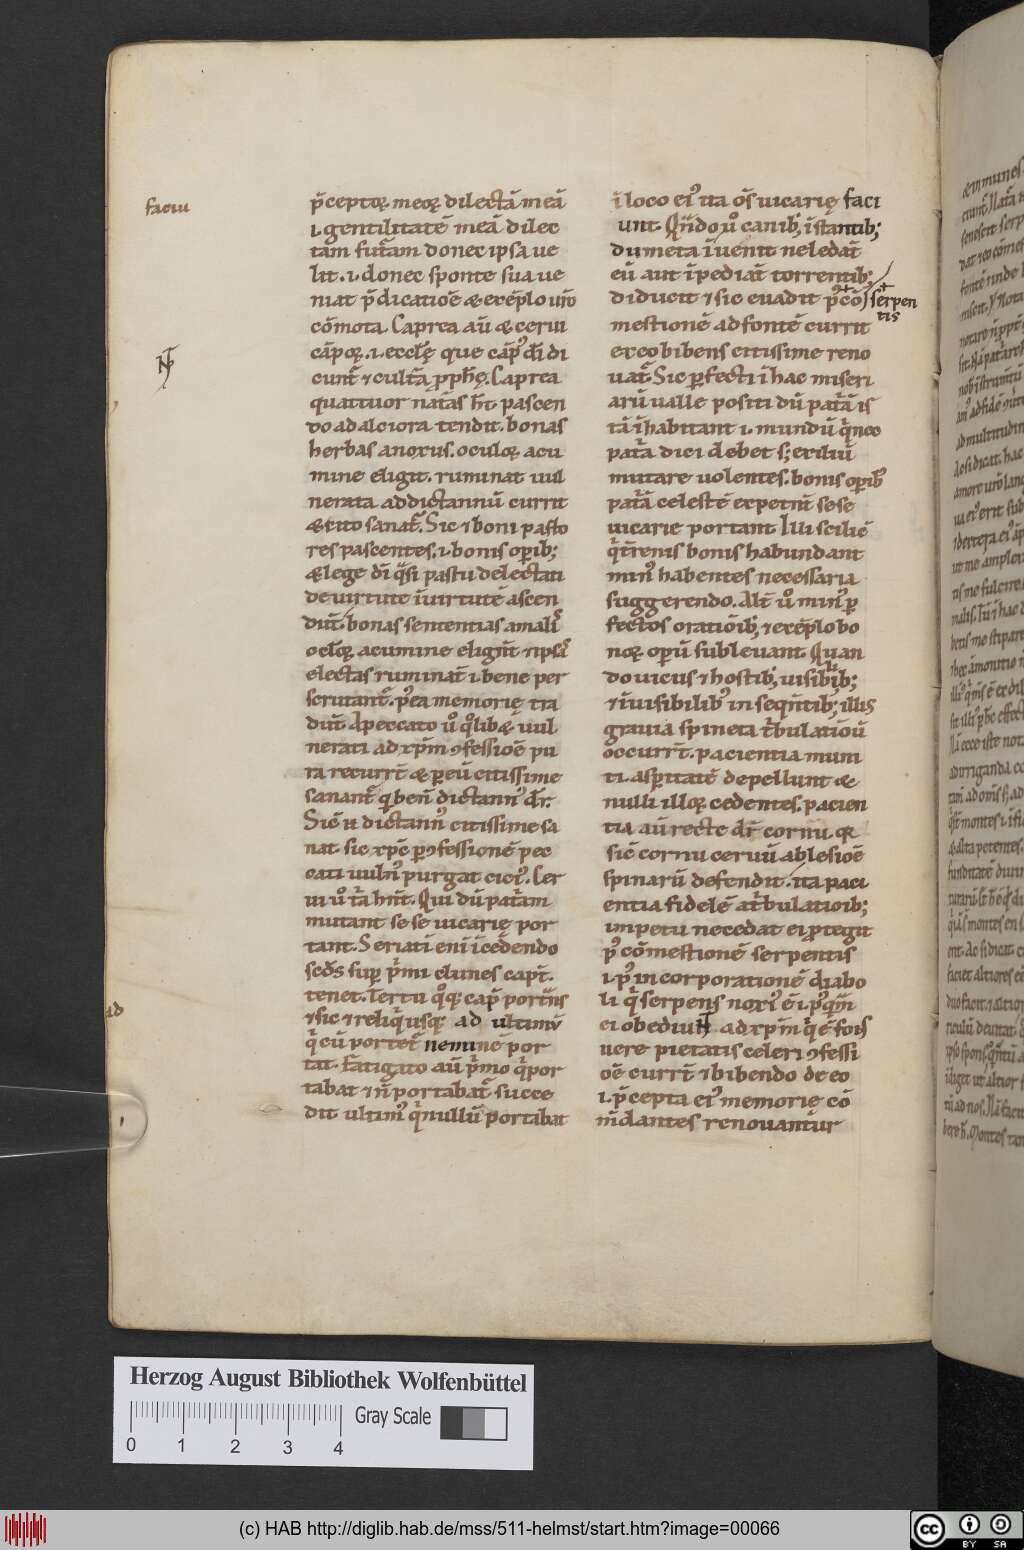 faciu
p̄ceptoꝝ meoꝝ dilectā meā
.i. gentilitatē meā dilec
tam fut̄am donec ipsa ue
lit .i. donec sponte sua ue
niat p̄dicatiōe & exēplo ur̄o
cōmota. Caprea aū & cerui
cāpoꝝ .i. eccl̄ę que cāpꝰ dī di
cunt̄ ⁊ culta ꝓph̄ę. Caprea
quattuor nat̄as h̄t. pascen
do ad alciora tendit. bonas
herbas a noxiis. oculoꝝ acu
mine eligit. ruminat. uul
nerata ad dictannū currit
& cito sanat̄. Sic ⁊ boni pasto
res pascentes .i. bonis oꝑib;
& lege dī q̄si pastu delectati
de uirtute ī uirtutē ascen
dūt. bonas sententias a maliſ
oc̄loꝝ acumine eligūt ⁊ ipsaſ
electas ruminat̄ .i. bene per
scrutant̄. pꝰea memorię tra
dūt. A peccato ū q̄libꝫ uul
nerati ad xp̄m ꝯfessiōe pu
ra recurrt̄ & ꝑ eū citissime
sanant̄ q bn̄ dictannꝰ dr̄.
Sic̄ n̄ dictannꝰ citissime sa
nat. sic xp̄c ꝑ ꝯfessionē pec
cati uuln̄ꝰ purgat cicꝰ. Cer
ui ū t̄a hn̄t. Qui dū pat̄am
mutant se se uicarię por
tant. Seriati eni īcedendo
sc̄ds suꝑ p̄mi clunes capt̄.
tenet. Tertii q̄qꝫ capꝰ portūs
⁊ sic ⁊ reliq̄ usqꝫ ad ultimū
q̄ cū portet̄ neminē por
tat. Fatigato aū p̄mo q̄ por
tabat ⁊ n̄ portabat̄ succe
dit ultimꝰ q̄ nullū portabat
ī loco eiꝰ ita oms uicarię faci
unt. Qn̄do ū canib; īstantib;
dumeta īuenit ne ledat̄
eū aut īpediat̄ torrentib;
diducit ⁊ sic euadit pꝰcō serpen
tis
mestionē ad fontē currit
ex co bibens citissime reno
uat̄. Sic ꝑfecti ī hac miseri
arū ualle positi dū pat̄ā is
tā īhabitant .i. mundū q̄ nec
pat̄a dici debet s; exiliū
mutare uolentes. bonis oꝑibꝰ
pat̄ā celestē expetūt se se
uicarie portant Illi scilic̄
q̄ t̄renis bonis habundant
minꝰ habentes necessaria
suggerendo. Alt̄ ū minꝰ ꝑ
fectos oratiōib; ⁊ exēplo bo
noꝝ oꝑū subleuant. Quan
do uicus ⁊ hostib; uisibib;
⁊ īuisibilibꝰ in seqn̄tib; illis
grauia spineta t̄bulatiōū
occurrt̄. pacientia muni
ti. aspitatē depellunt &
nulli illoꝝ cedentes. pacien
tia aū recte dr̄ cornu. qꝫ
sic̄ cornu ceruū ab lesiōe
spinarū defendit. ita paci
entia fidelē a t̄bulatioib;
impetu ne cedat ei ꝓtegit
pꝰ cōmestionē serpentis
.i. pꝰ incorporationē diabo
li q̄ serpens noxꝰ ē .i. pꝰqm̄
ei obediūt ad xp̄m q̄ ē fons
uere pietatis celeri ꝯfessi
oē currt̄ ⁊ bibendo de eo
.i. p̄cepta eiꝰ memorię cō
m̄dantes renouantur
ad
Herzog August Bibliothek Wolfenbüttel
Gray Scale
0 1 2 3 4
(c) HAB http://diglib.hab.de/mss/511-helmst/start.htm?image=00066
cc BY SA